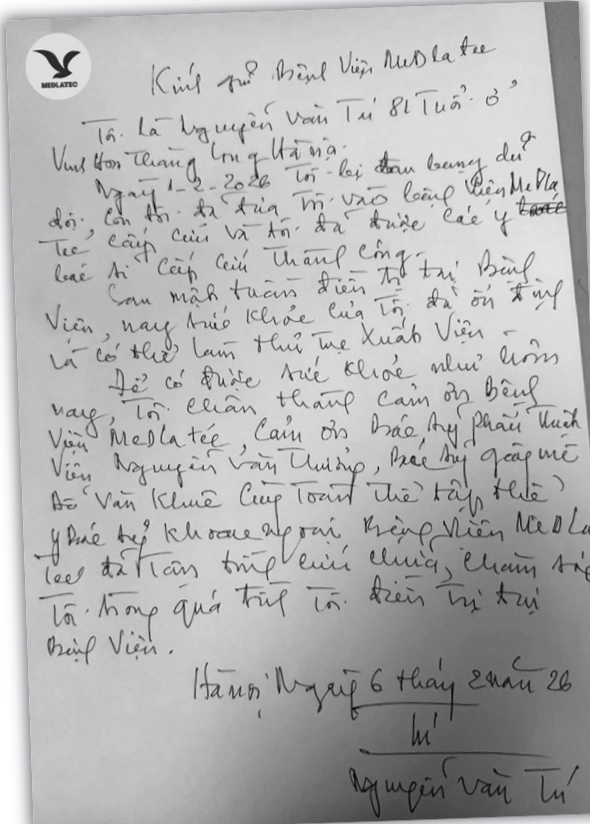 MEDLATEC
Kính gửi Bệnh Viện MeDlatec
Tôi là Nguyễn Văn Tú 81 Tuổi ở
Vinhhom Thăng Long Hà Nội.
Ngày 1-2-2026 Tôi bị đau bụng dữ
dội, Con tôi đã đưa Tôi vào bệnh Viện MeDla
Tec cấp cứu và tôi đã được các y
bác sĩ cấp cứu thành công.
Sau một tuần điều trị tại Bệnh
Viện, nay sức khỏe của Tôi đã ổn định
và có thể làm thủ tục Xuất Viện.
Để có được sức khoẻ như hôm
nay, Tôi chân thành cảm ơn Bệnh
Viện MeDlatec, Cảm ơn Bác sỹ phẫu thuật
Viên Nguyễn Văn Thưởng, Bác sỹ gây mê
Đỗ Văn Khuê Cùng Toàn Thể tập thể
y Bác sỹ khoa ngoại Bệnh Viện MeDla
Tec đã Tận tình cứu chữa, Chăm sóc
Tôi trong quá trình Tôi điều Trị tại
Bệnh Viện.
Hà nội Ngày 6 tháng 2 năm 26
Tú
Nguyễn Văn Tú